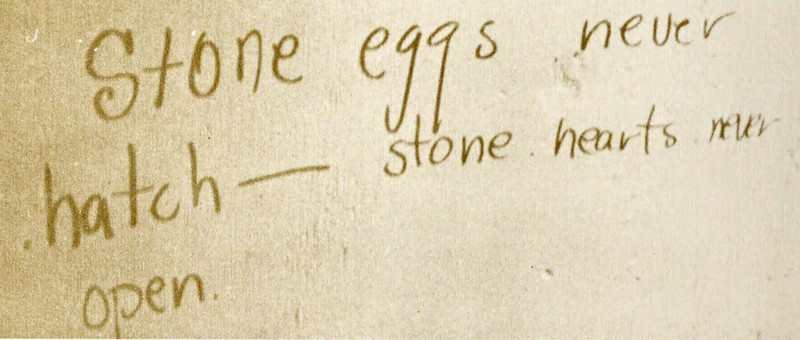 Stone eggs never
hatch — stone hearts never
open.